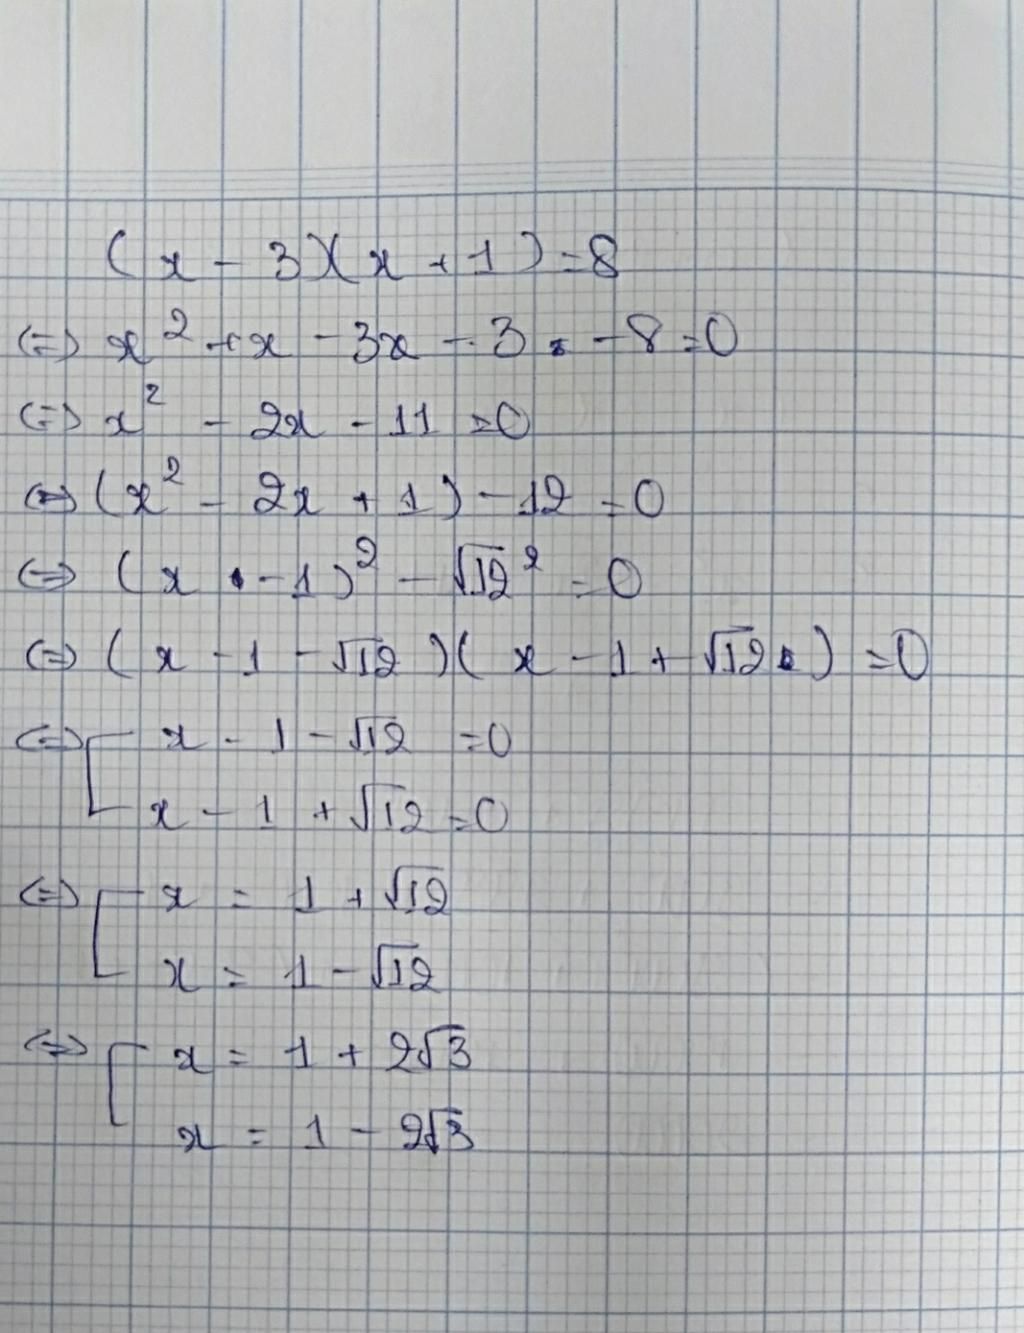 (x - 3)(x + 1) = 8
(=) x² + x - 3x - 3 - 8 = 0
(=) x² - 2x - 11 = 0
(=) (x² - 2x + 1) - 12 = 0
(=) (x - 1)² - √12² = 0
(=) (x - 1 - √12)(x - 1 + √12) = 0
(=) [ x - 1 - √12 = 0
x - 1 + √12 = 0
(=) [ x = 1 + √12
x = 1 - √12
(=) [ x = 1 + 2√3
x = 1 - 2√3